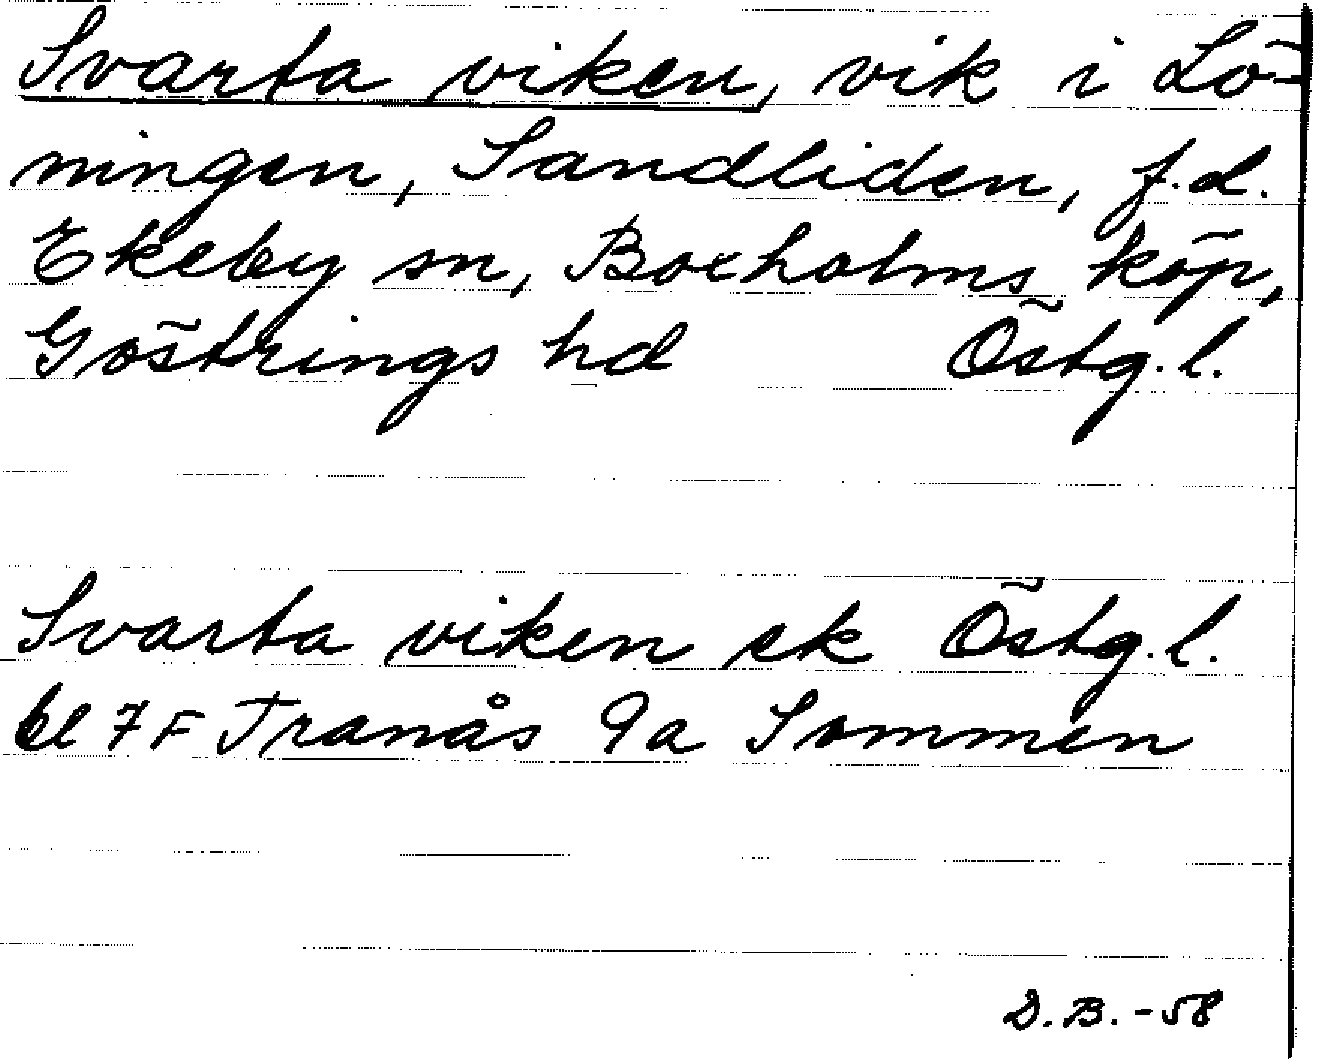 Svarta viken, vik i Lö-
ningen, Sandliden, f.d.
Ekeby sn, Boxholms köp,
Göstrings hd Östg.l.
Svarta viken ek Östg.l.
bl 7F Tranås 9a Sommen
D.B. -58